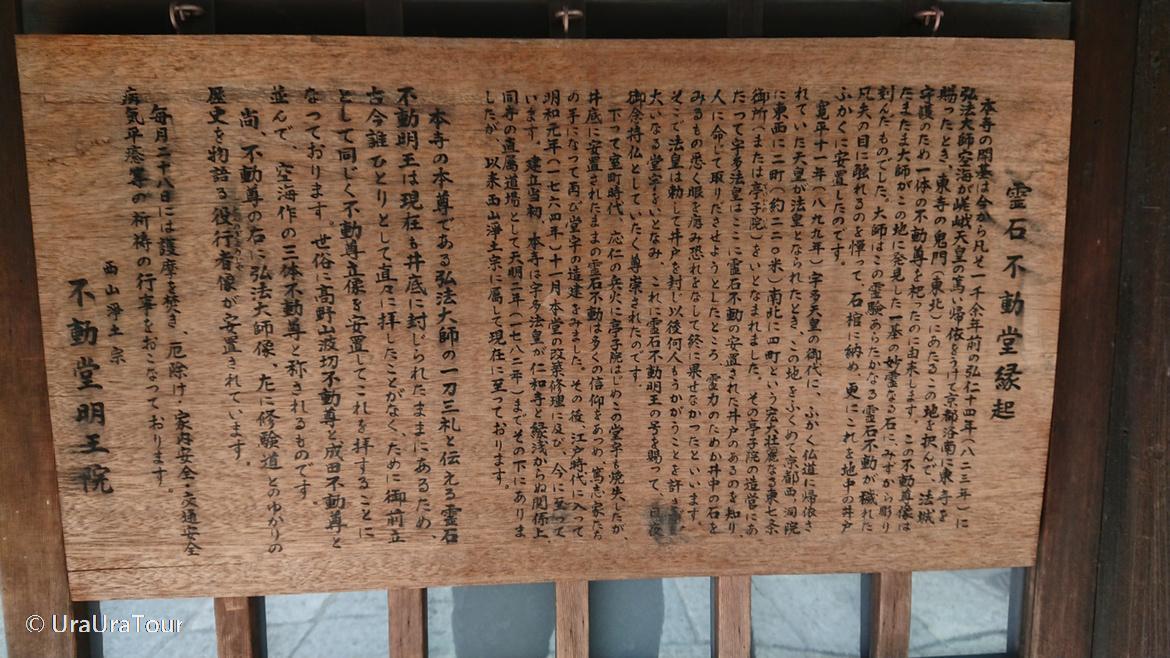 霊石不動堂縁起
本寺の開基は今から凡そ一千余年前の弘仁十四年(八二三年)に
弘法大師空海が嵯峨天皇の篤い帰依をうけて京都洛南に東寺を
賜ったとき、東寺の鬼門(東北)にあたるこの地を択んで、法城
守護のため一体の不動尊を祀ったのに由来します。この不動尊像は
たまたま大師がこの地に発見した一基の妙霊なる石にみずから彫り
刻んだものでした。大師はこの霊験あらたかなる霊石不動が穢れた
凡夫の目に触れるのを憚って、石棺に納め、更にこれを地中の井戸
ふかくに安置したのです。
寛平十一年(八九九年)宇多天皇の御代に、ふかく仏道に帰依さ
れていた天皇が法皇となられたとき、この地をふくめて京都西洞院
に東西に二町(約二二〇米)南北に四町という宏大壮麗なる東七条
御所(または亭子院)をいとなまれました。その亭子院の造営にあ
たって宇多法皇はここに霊石不動の安置された井戸のあるのを知り、
人に命じて取りださせようとしたところ、霊力のためか井中の石を
みるもの悉く眼を痛み恐れをなして終に果せなかったといいます。
そこで法皇は勅して井戸を封じ以後何人もうかがうことを許さず
大いなる堂宇をいとなみ これに霊石不動明王の号を賜って、
御念持仏としていたく尊崇されたのです。
下って室町時代、応仁の兵火に亭子院はじめこの堂宇も焼失したが、
井底に安置されたままの霊石不動は多くの信仰をあつめ、篤志家たち
の手になって再び堂宇の造建をみました。その後、江戸時代に入って
明和元年(一七六四年)十一月本堂の改築修理に及び、今に至って
います。建立当初、本寺は宇多法皇が仁和寺と縁浅からぬ関係上、
同寺の直属道場として天明二年(一七八二年)までその下にありま
したが、以来西山浄土宗に属して現在に至っております。
本寺の本尊である弘法大師の一刀三礼と伝える霊石
不動明王は現在も井底に封じられたままにあるため、
古今誰ひとりとして直々に拝したことがなく、ために御前立
として同じく不動尊立像を安置してこれを拝することに
なっております。世俗に高野山波切不動尊と成田不動尊と
並んで、空海作の三体不動尊と称されるものです
尚、不動尊の右に弘法大師像、左に修験道とのゆかりの
歴史を物語る役行者像が安置されています。
毎月二十八日には護摩を焚き、厄除け・家内安全・交通安全
病気平癒等の祈祷の行事をおこなっております。
西山浄土宗
不動堂明王院
© UraUraTour